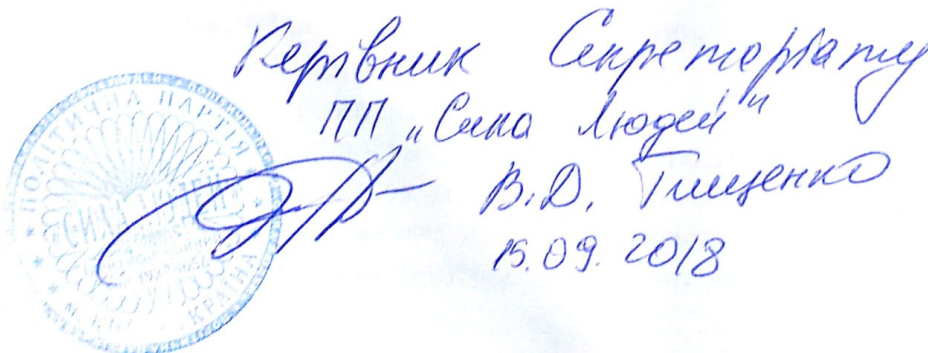 Керівник Секретаріату
ПП „Сила Людей"
В.Д. Тищенко
15.09.2018
ПОЛІТИЧНА ПАРТІЯ
СИЛА ЛЮДЕЙ
УКРАЇНА